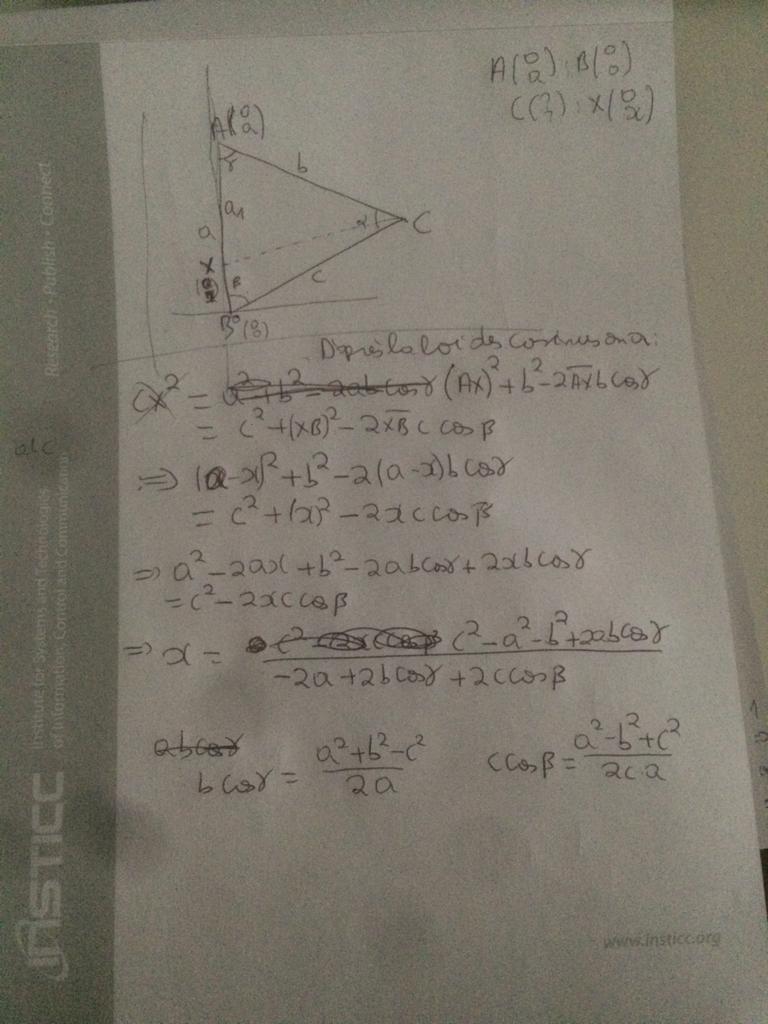 A(0 a) : B(0 0)
C(?) : X(0 x)
A(0 a)
γ
b
a1
a
α
C
X
β
c
B(0 0)
D'après la loi des cosinus on a :
CX² = a² + b² - 2ab cosγ (AX)² + b² - 2AX b cosγ
= c² + (XB)² - 2XB c cosβ
⇒ (a-x)² + b² - 2(a-x)b cosγ
= c² + (x)² - 2xc cosβ
⇒ a² - 2ax + b² - 2ab cosγ + 2xb cosγ
= c² - 2xc cosβ
⇒ x = c² - a² - b² + 2ab cosγ / -2a + 2b cosγ + 2c cosβ
ab cosγ
b cosγ = a² + b² - c² / 2a
c cosβ = a² - b² + c² / 2c.a
alc
Research - Publish - Connect
Institute for Systems and Technologies
of Information, Control and Communication
INSTICC
www.insticc.org